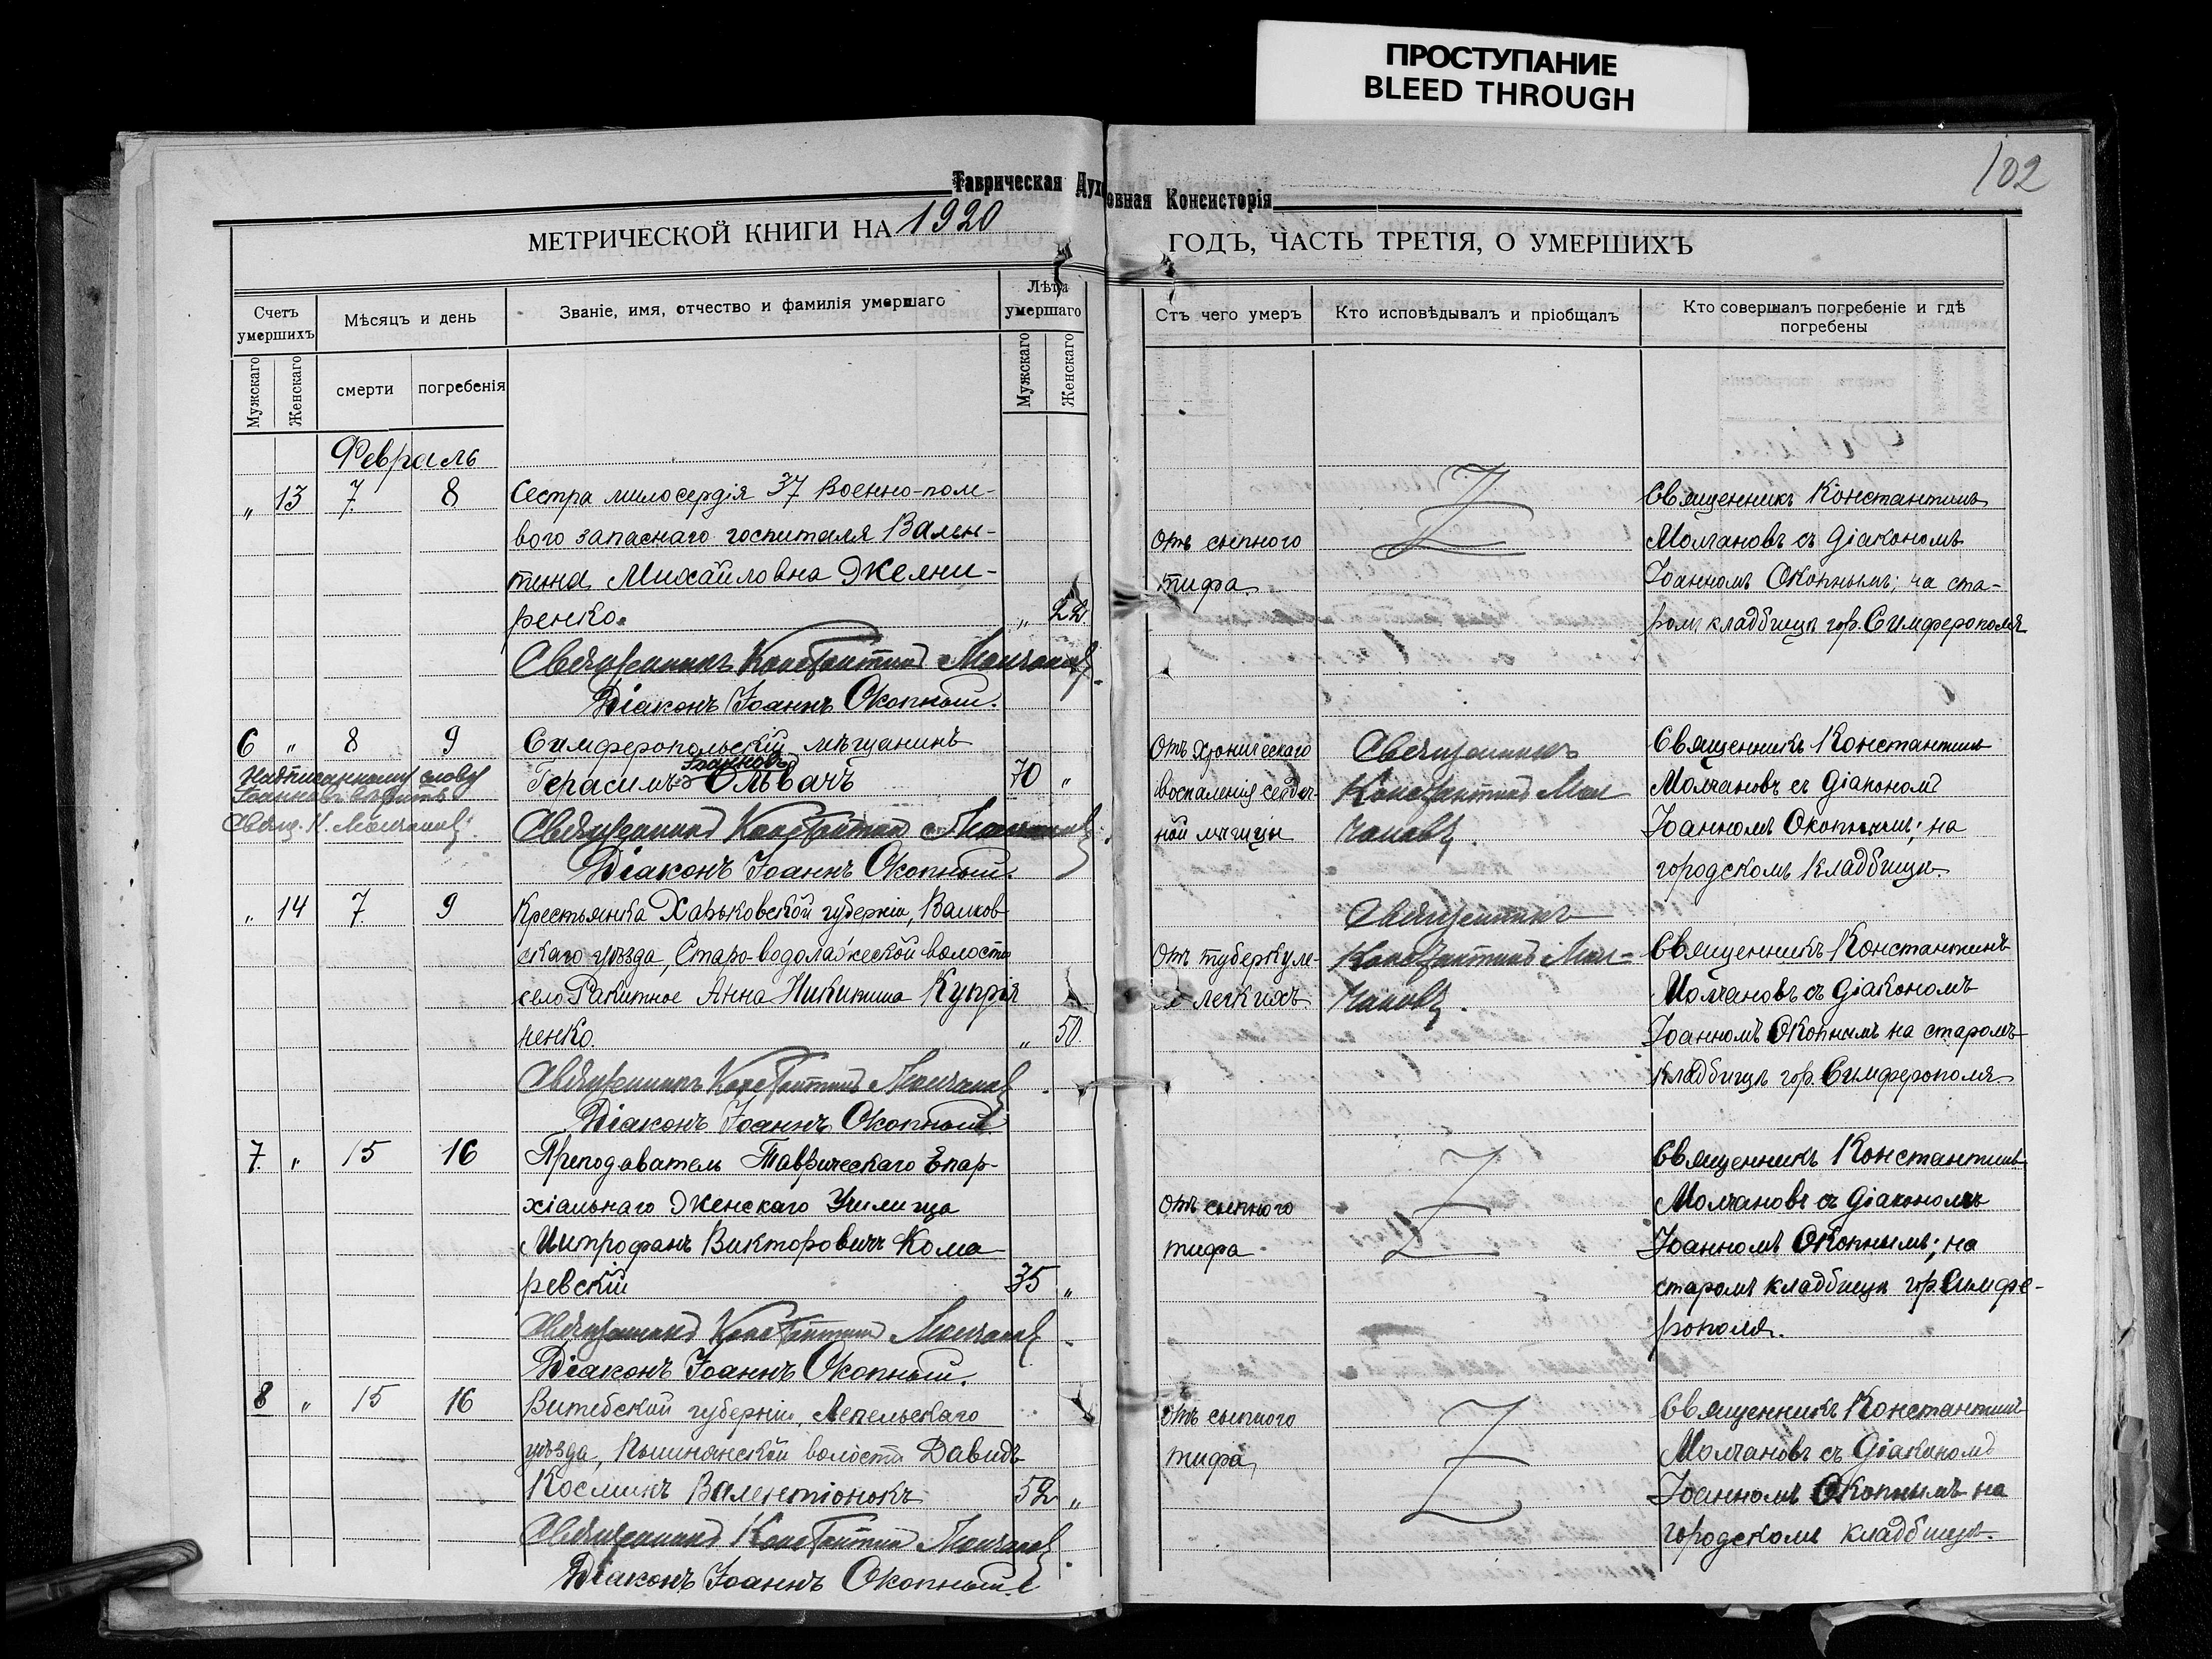 ПРОСТУПАНИЕ
BLEED THROUGH
102
Таврическая Духовная Консисторія
МЕТРИЧЕСКОЙ КНИГИ НА 1920 ГОДЪ, ЧАСТЬ ТРЕТІЯ, О УМЕРШИХЪ
Счетъ умершихъ
Мѣсяцъ и день
Званіе, имя, отчество и фамилія умершаго
Лѣта умершаго
Отъ чего умеръ
Кто исповѣдывалъ и пріобщалъ
Кто совершалъ погребеніе и гдѣ погребены
Мужскаго
Женскаго
смерти
погребенія
Мужскаго
Женскаго
Февраль
" 13 7. 8 Сестра милосердія 37 Военно-поле-
вого запаснаго госпиталя Вален-
тина Михайловна
ренко. " 22
Отъ сыпного
тифа.
Священникъ Константинъ
Молчановъ съ діакономъ
Іоанномъ Окопнымъ; на ста-
ромъ кладбищѣ гор. Симферополя
Священникъ Константинъ Молчановъ.
Діаконъ Іоаннъ Окопный.
6 " 8 9 Симферопольскій мѣщанинъ
Іоанновъ
Герасимъ Ольвачъ 70 "
Надписанному слову
Іоанновъ вѣрить
Свящ. К. Молчановъ.
Отъ хроническаго
воспаленія сердеч-
ной мышцы
Священникъ
Константинъ Мол
чановъ.
Священникъ Константинъ
Молчановъ съ діакономъ
Іоанномъ Окопнымъ; на
городскомъ кладбищѣ.
Священникъ Константинъ Молчановъ.
Діаконъ Іоаннъ Окопный.
" 14 7. 9 Крестьянка Харьковской губерніи, Валков
скаго уѣзда, Старо-водолажской волости
село Ракитное Анна Никитина Купрія
ненко. " 50.
Отъ туберкуле-
легкихъ
Священникъ
Константинъ Мол=
чановъ.
Священникъ Константинъ
Молчановъ съ діакономъ
Іоанномъ Окопнымъ на старомъ
кладбищѣ гор. Симферополя.
Священникъ Константинъ Молчановъ.
Діаконъ Іоаннъ Окопный.
7. " 15 16 Преподаватель Таврическаго Епар-
хіальнаго Женскаго Училища
Митрофанъ Викторовичъ Кома
ревскій 35 "
Отъ сыпного
тифа
Священникъ Константинъ
Молчановъ съ діакономъ
Іоанномъ Окопнымъ; на
старомъ кладбищѣ гор. Симфе-
рополя.
Священникъ Константинъ Молчановъ.
Діаконъ Іоаннъ Окопный.
8 " 15 16 Витебской губерніи, Лепельскаго
уѣзда, волости Давидъ
Космичъ Валентіонокъ 52 "
Отъ сыпного
тифа
Священникъ Константинъ
Молчановъ съ діакономъ
Іоанномъ Окопнымъ на
городскомъ кладбищѣ.
Священникъ Константинъ Молчановъ.
Діаконъ Іоаннъ Окопный.